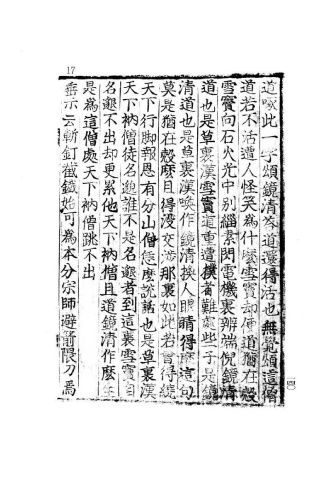 17
道啄此一字頌鏡清答道還得活也無覺頌這僧
道若不活遭人怪笑為什麼雪竇却便道猶在殼
雪竇向石火光中別緇素閃電機裏辨端倪鏡清
道也是草裏漢雪竇道重遭撲者難處些子是鏡
清道也是草裏漢喚作鏡清換人眼睛得麼這句
莫是猶在殼麼且得沒交涉那裏如此若會得繞
天下行脚報恩有分山僧恁麼說話也是草裏漢
天下衲僧徒名邈誰不是名邈者到這裏雪竇自
名邈不出却更累他天下衲僧且道鏡清作麼生
是為這僧處天下衲僧跳不出
垂示云斬釘截鐵始可為本分宗師避箭隈刀焉